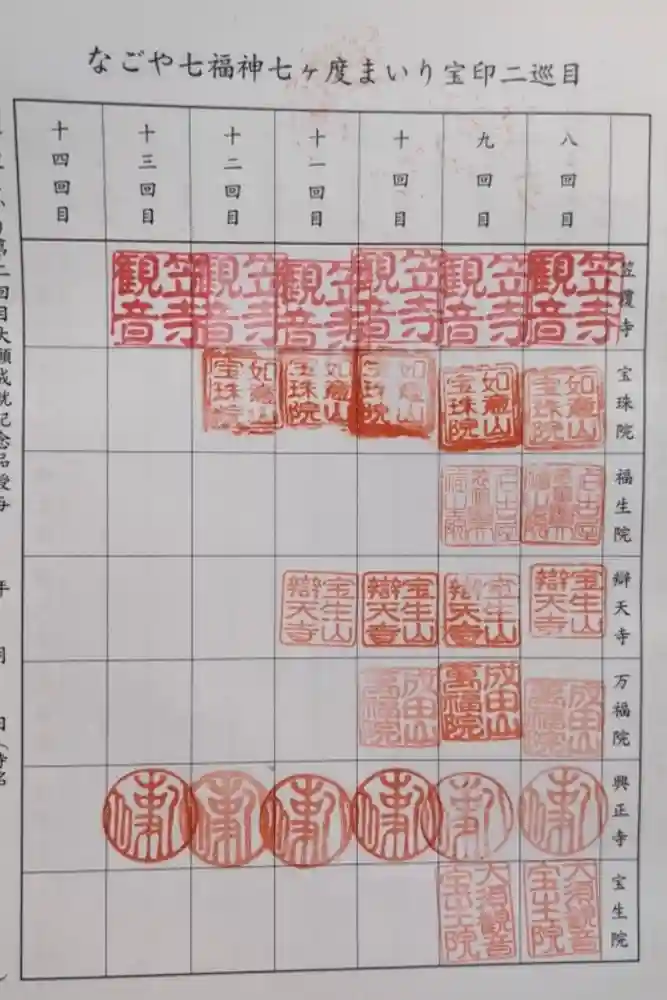 なごや七福神七ヶ度まいり宝印二巡目
八回目
九回目
十回目
十一回目
十二回目
十三回目
十四回目
笠覆寺
笠寺観音
笠寺観音
笠寺観音
笠寺観音
笠寺観音
笠寺観音
宝珠院
如意山宝珠院
如意山宝珠院
如意山宝珠院
如意山宝珠院
如意山宝珠院
福生院
辯天寺
宝生山辯天寺
宝生山辯天寺
宝生山辯天寺
宝生山辯天寺
万福院
成田山萬福院
成田山萬福院
成田山萬福院
興正寺
宝生院
大須観音宝生院
大須観音宝生院
り第二回目大願成就記念品授与
年
日